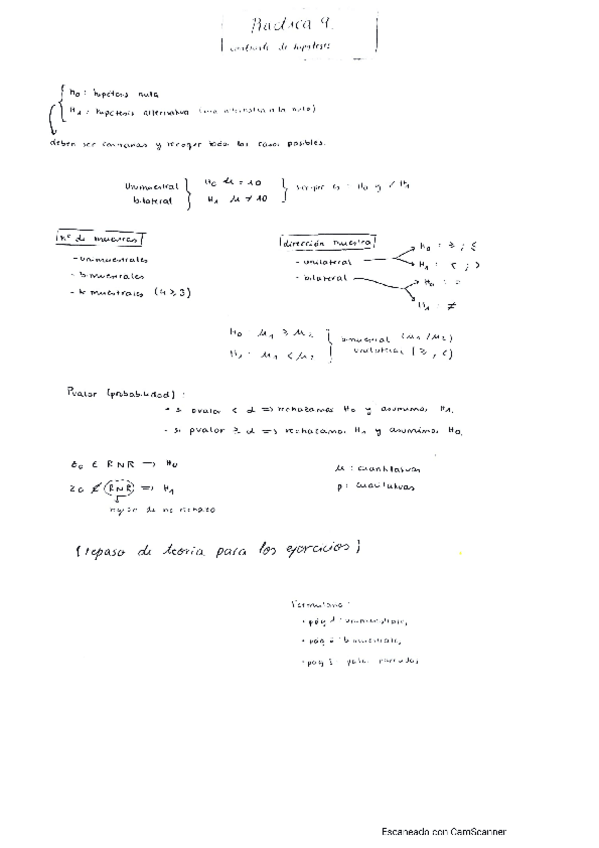 Practica 9.
contraste de hipotesis
H0 : hipotesis nula
H1 : hipotesis alternativa (una alternativa a la nula)
deben ser contrarias y recoger todos los casos posibles.
Unimuestral H0 μ = 10
bilateral H1 μ ≠ 10
siempre es : H0 y / H1
Nº de muestras
- unimuestrales
- bimuestrales
- k muestrales (k ≥ 3)
dirección muestral
- unilateral
H0 : ≥ ; ≤
H1 : < ; >
- bilateral
H0 : =
H1 : ≠
H0 μ1 ≥ μ2
H1 : μ1 < μ2
bimuestral (μ1 / μ2)
unilateral (≥, <)
Pvalor (probabilidad) :
- si pvalor < α => rechazamos H0 y asumimos H1.
- si pvalor ≥ α => rechazamos H1 y asumimos H0.
z0 ∈ RNR => H0
z0 ∉ RNR => H1
región de no rechazo
μ : cuantitativas
p : cualitativas
[repaso de teoria para los ejercicios]
Formulario :
· pág 1 : unimuestrales
· pág 2 : bimuestrales
· pág 3 : datos pareados
Escaneado con CamScanner